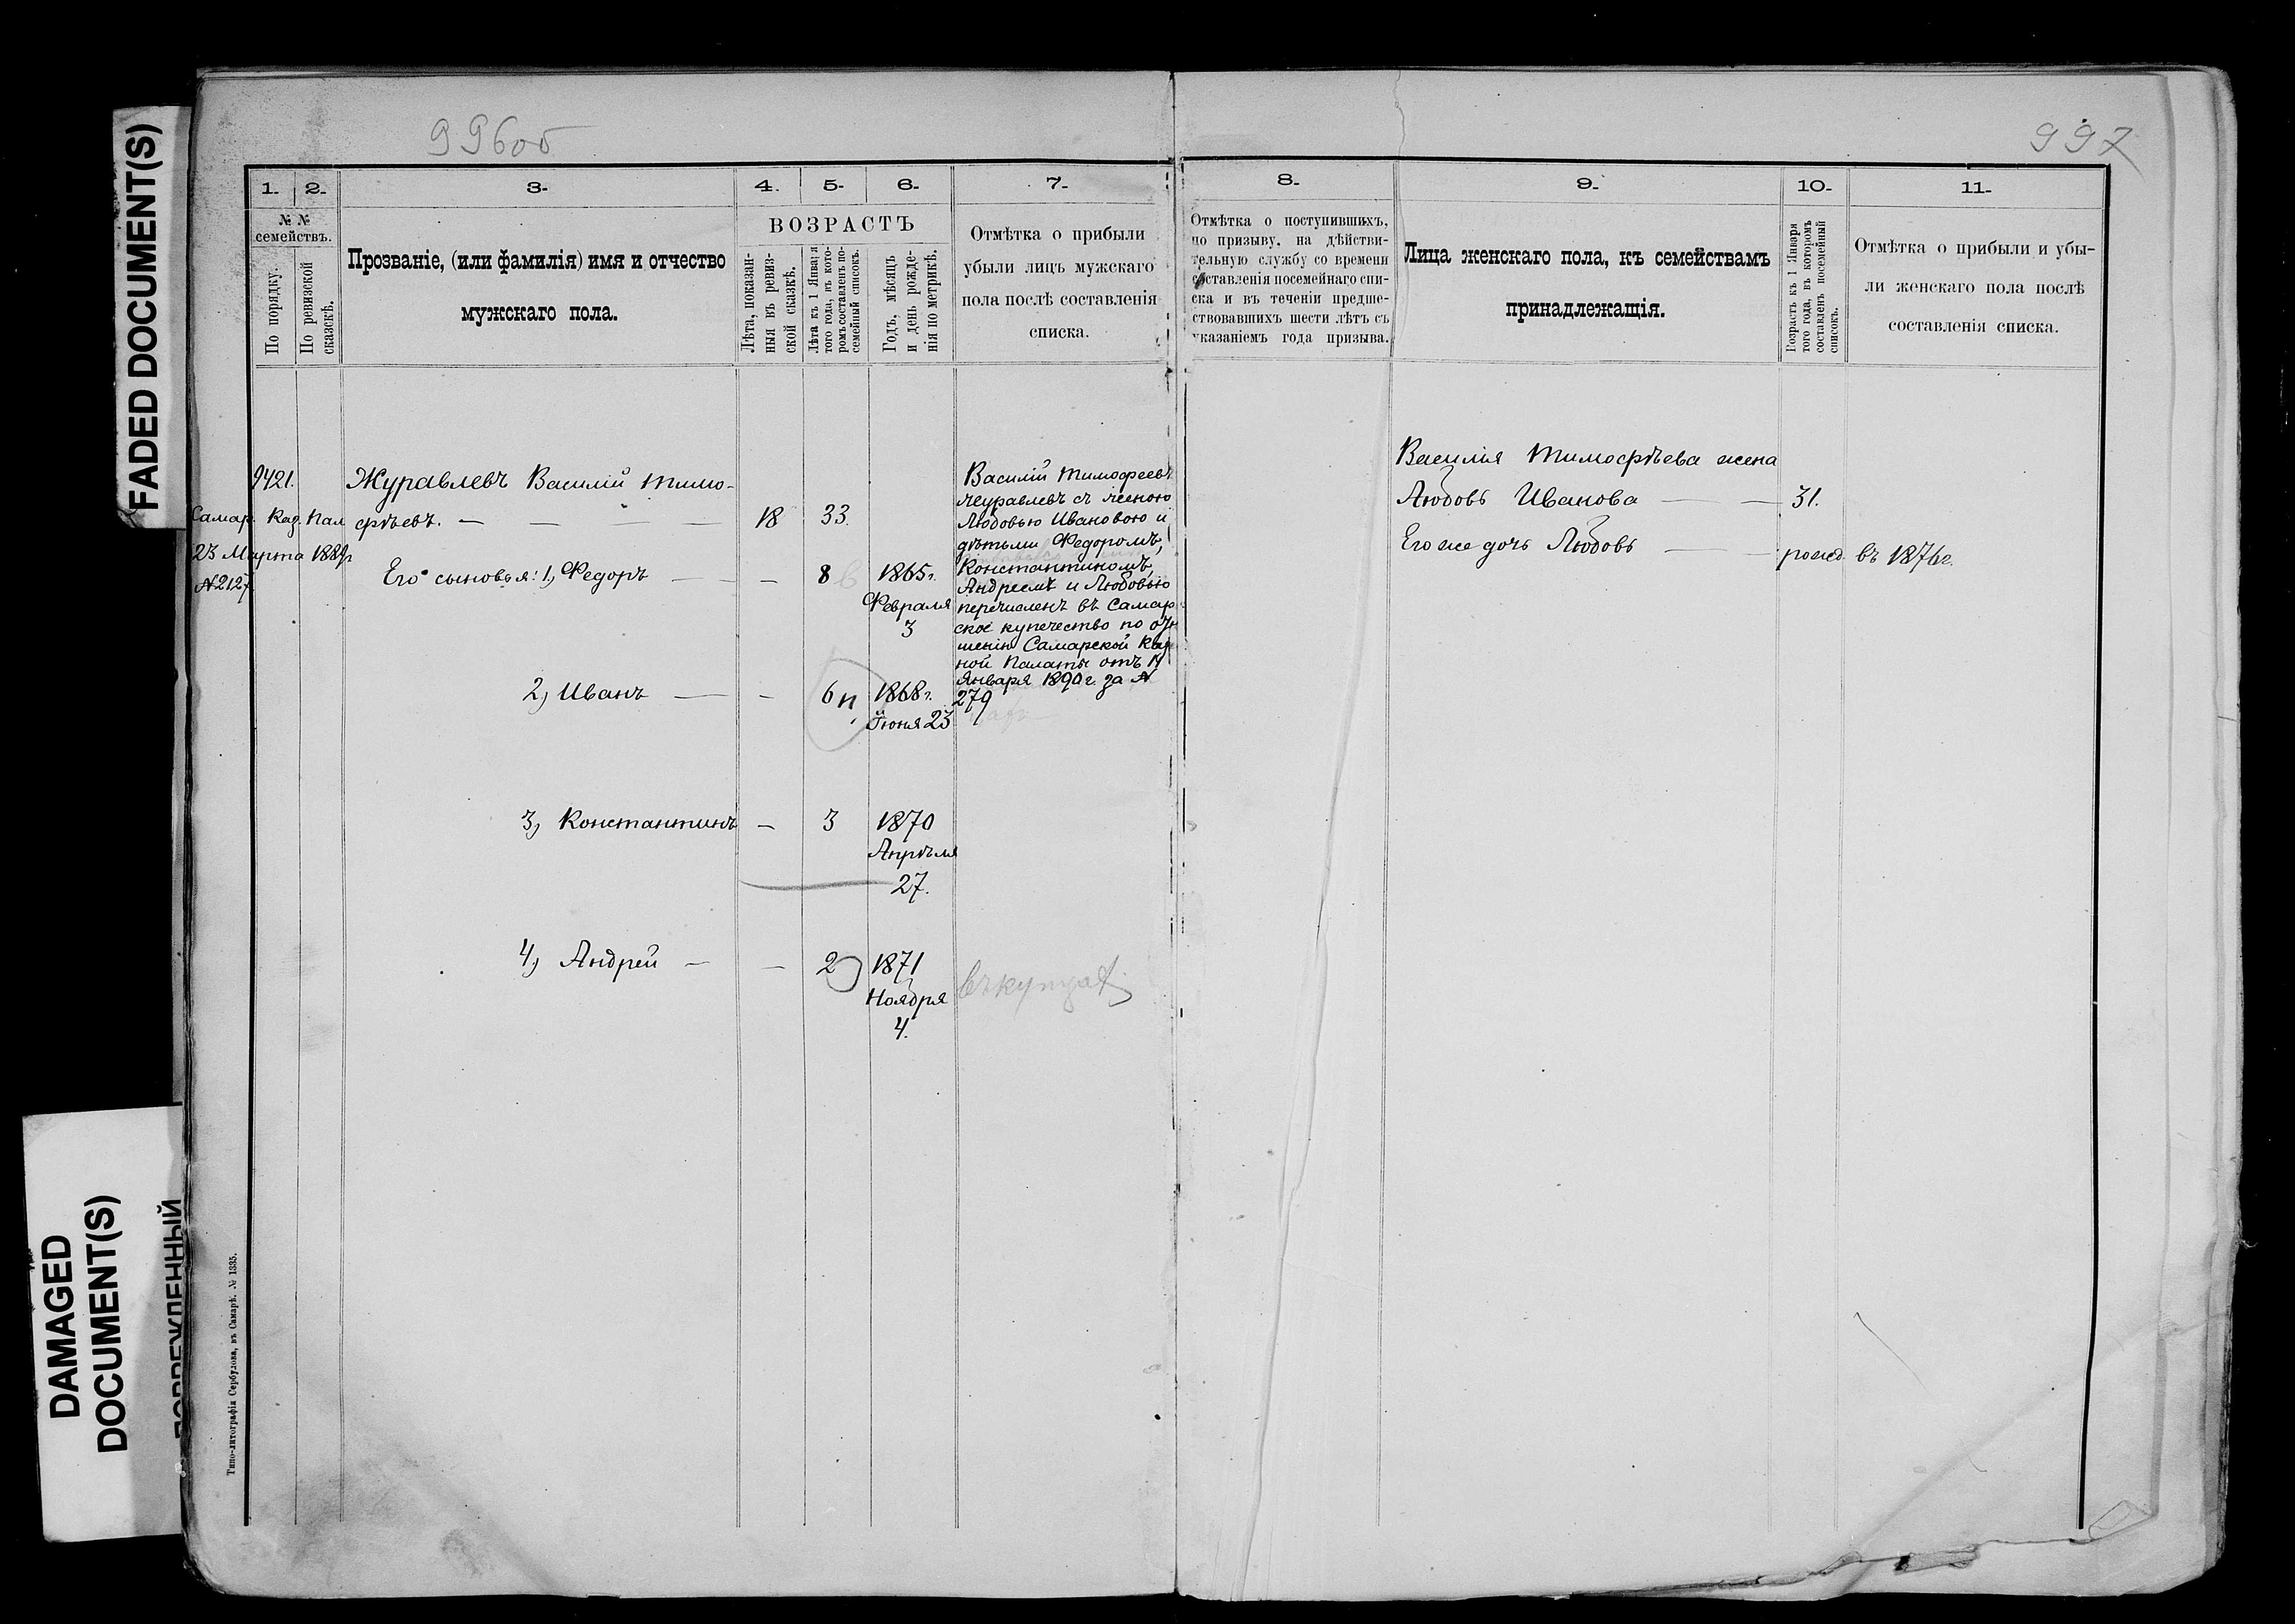 FADED DOCUMENT(S)
DAMAGED
DOCUMENT(S)
996об
997
1.
2.
3.
4.
5.
6.
7.
№ №
семействъ.
По порядку.
По ревизской
сказскѣ.
Прозваніе, (или фамилія) имя и отчество
мужскаго пола.
ВОЗРАСТЪ
Лѣта, показан-
ныя въ ревиз-
ской сказкѣ.
Лѣта къ 1 Января
того года, въ кото-
ромъ составленъ по-
семейный списокъ.
Годъ, мѣсяцъ
и день рожде-
нія по метрикѣ.
Отмѣтка о прибыли
убыли лицъ мужскаго
пола послѣ составленія
списка.
9421.
Самар. Каз. Пал
23 Марта 1889г
№2127
Журавлевъ Василій Тимо-
фѣевъ. — — — — 18 33.
Его сыновья: 1, Федоръ — — — 8 1865г.
Февраля
3
2, Иванъ — — 6 1868г.
Іюня 23
3, Константинъ — 3 1870
Апрѣля
27.
4, Андрей — — 2 1871
Ноября
4.
Василій Тимофеевъ
Журавлевъ съ женою
Любовью Ивановою и
дѣтьми Федоромъ,
Константиномъ,
Андреемъ и Любовью
перечисленъ въ Самар
ское купечество по
шенію Самарской Каз
ной Палаты отъ
Января 1890г. за №
279
8.
9.
10.
11.
Отмѣтка о поступившихъ,
по призыву, на дѣйстви-
тельную службу со времени
составленія посемейнаго спи-
ска и въ теченіи предше-
ствовавшихъ шести лѣтъ съ
указаніемъ года призыва.
Лица женскаго пола, къ семействамъ
принадлежащія.
Возрастъ къ 1 Января
того года, въ которомъ
составленъ посемейный
списокъ.
Отмѣтка о прибыли и убы-
ли женскаго пола послѣ
составленія списка.
Василія Тимофѣева жена
Любовь Иванова — — 31.
Его же дочь Любовь — — рожд. въ 1876г.
Типо-литографія Сербулова, въ Самарѣ. № 1335.